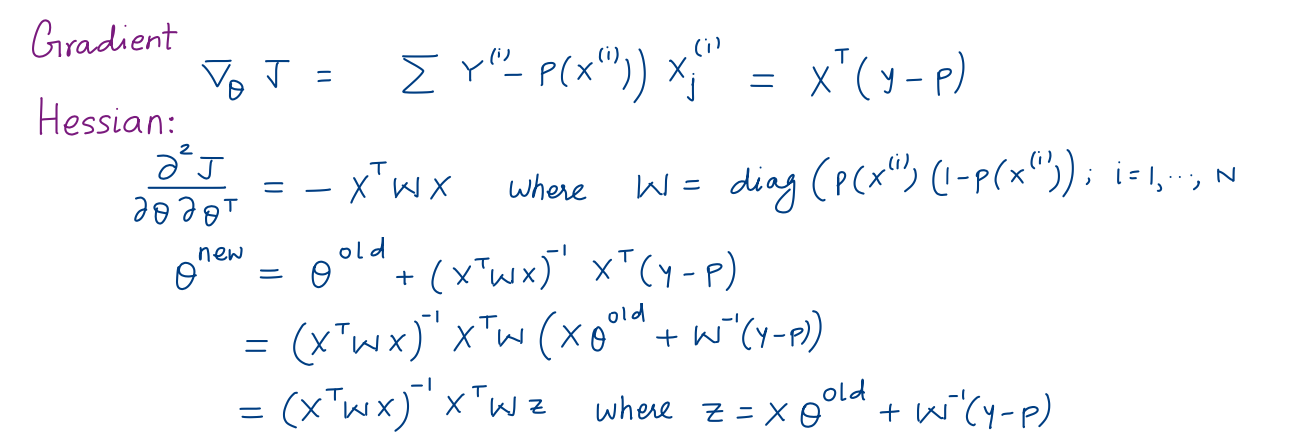 Gradient
∇_θ J = ∑ Y^(i) - P(X^(i))) X_j^(i) = X^T (y - p)
Hessian:
∂²J / ∂θ ∂θ^T = - X^T W X where W = diag (P(X^(i)) (1-P(X^(i))); i=1,..., N
θ^new = θ^old + (X^T W X)^-1 X^T (y - p)
= (X^T W X)^-1 X^T W (X θ^old + W^-1 (y-p))
= (X^T W X)^-1 X^T W z where z = X θ^old + W^-1 (y-p)